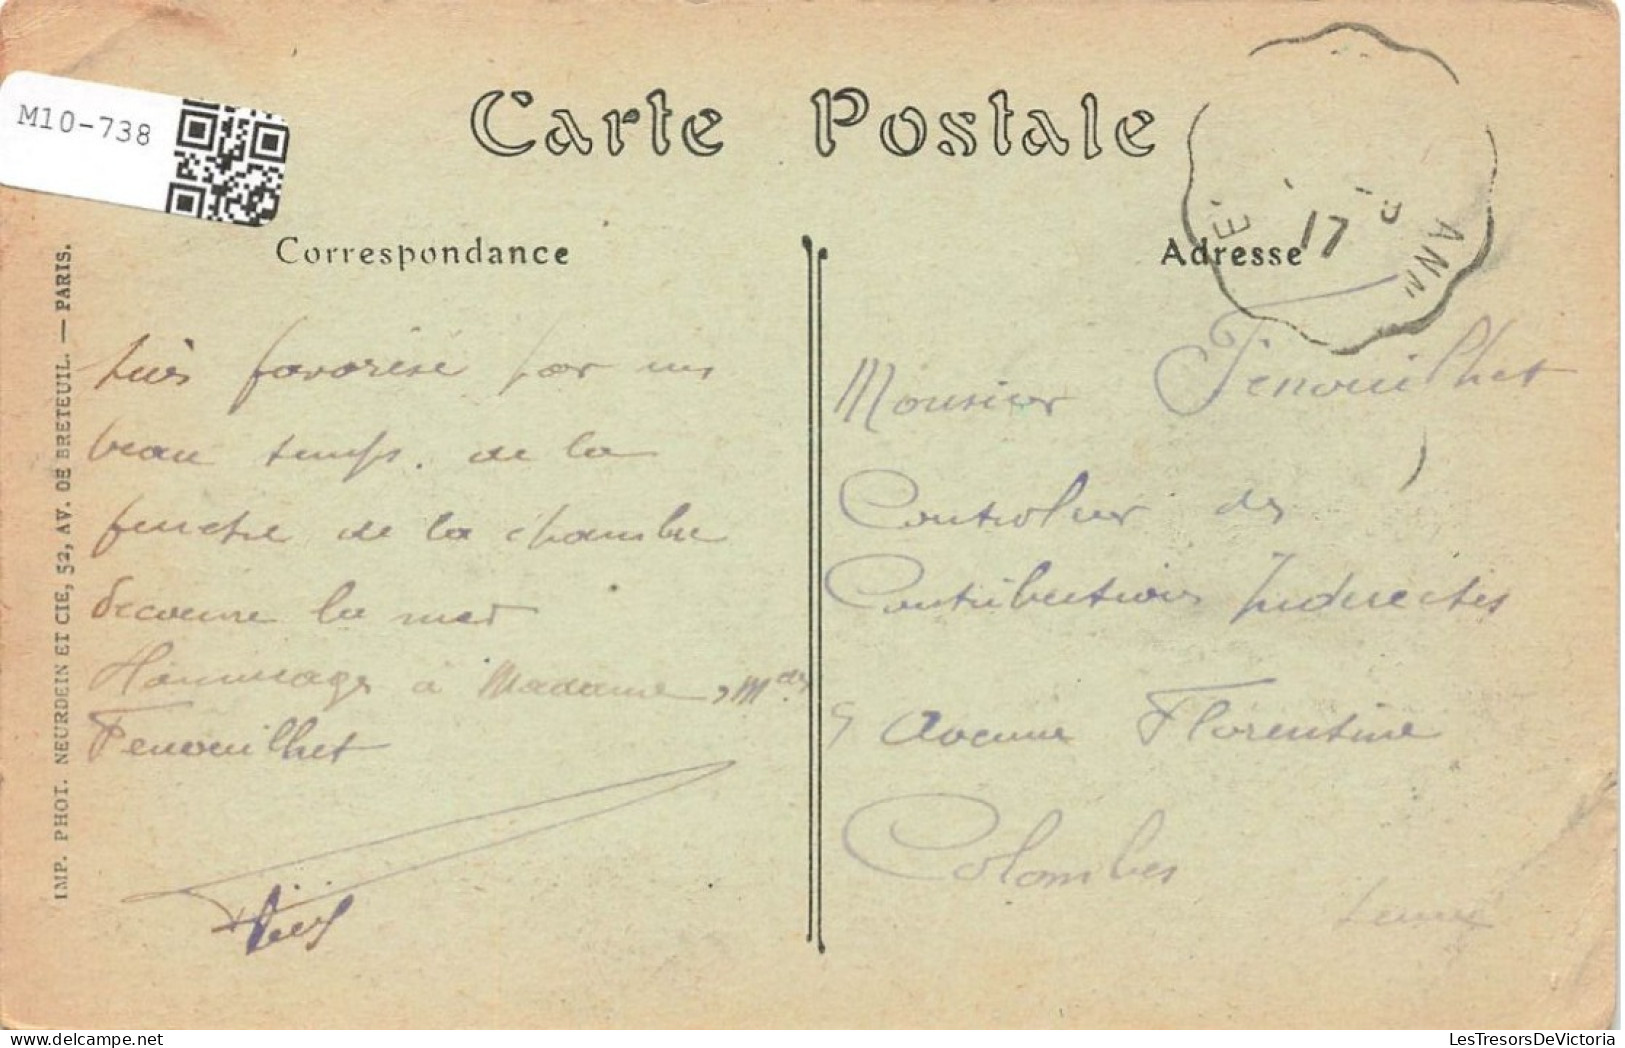 M10-738
Carte Postale
Correspondance
Adresse
17
IMP. PHOT. NEURDEIN ET CIE, 52, AV. DE BRETEUIL. — PARIS.
très favorisé par un
beau temps. de la
fenetre de la chambre
decouvre la mer
Hommages à Madame, Mdes
Fenouilhet
Monsieur Fenouilhet
Controleur des
Contributions Indirectes
9 Avenue Florentine
Colombes
Seine
LesTresorsDeVictoria